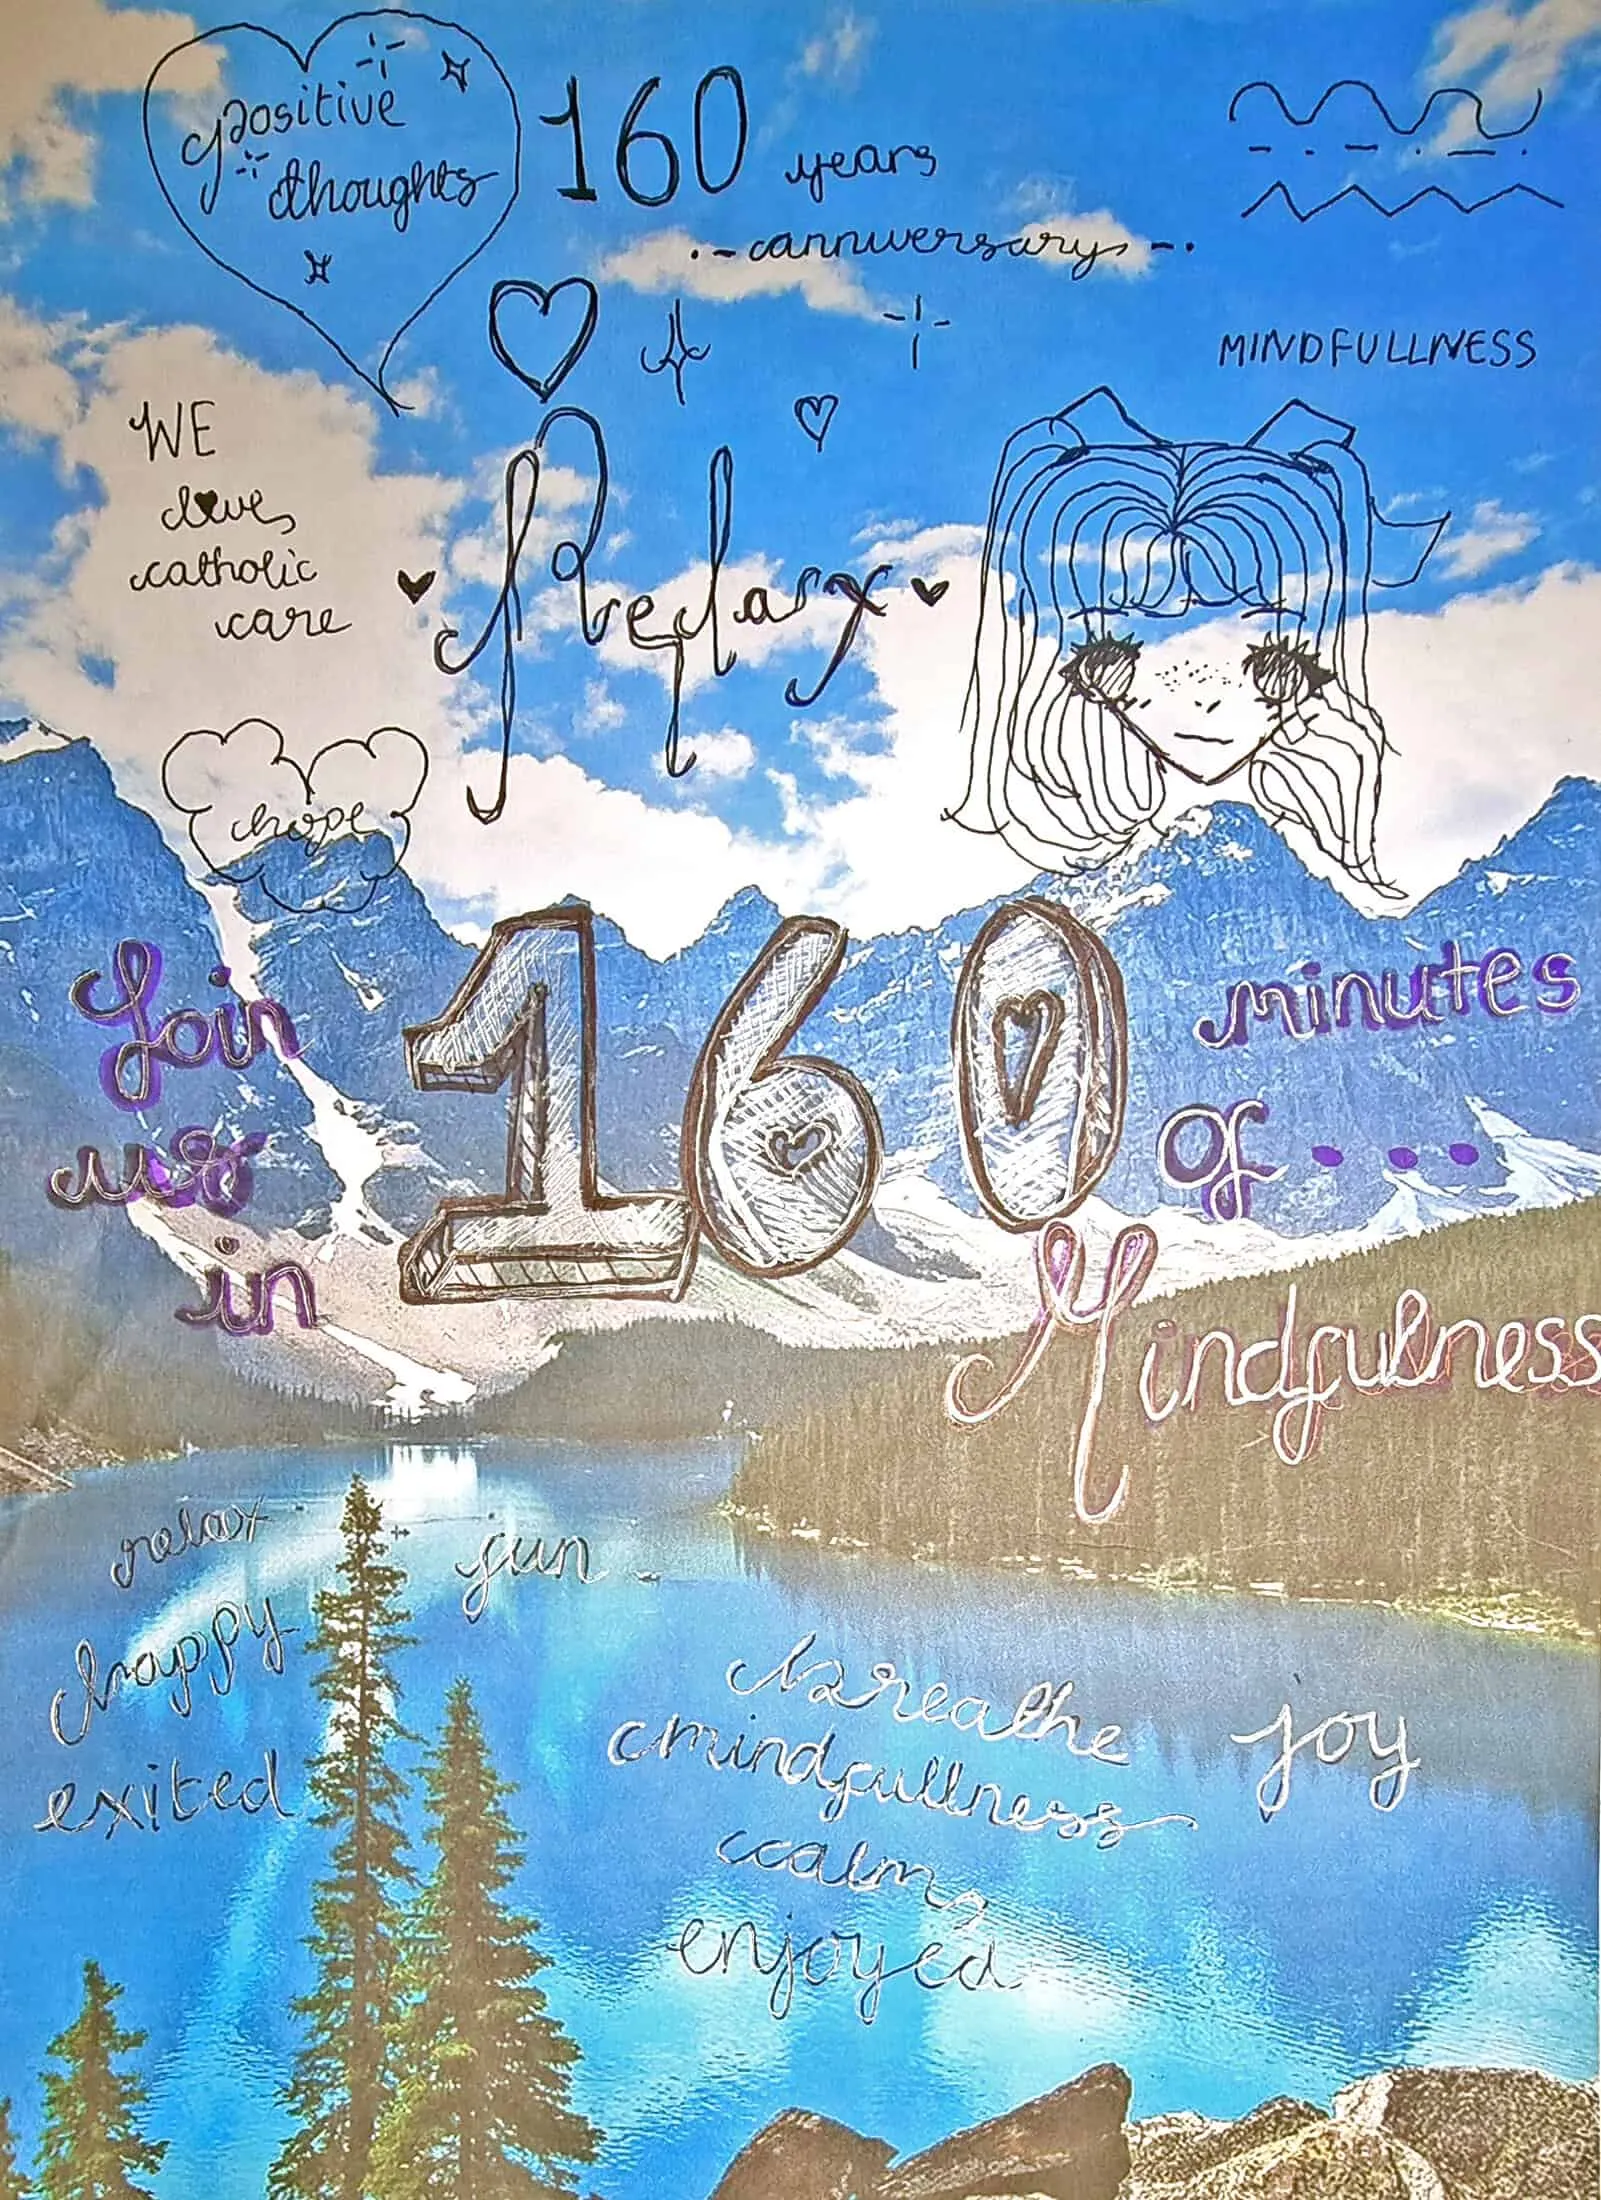 positive
thoughts
160 years
.-anniversary-.
MINDFULLNESS
WE
love
catholic
care
Relax
hope
Join
us
in
160
minutes
of....
Mindfulness
relax
fun
happy
exited
breathe
joy
mindfullness
calm
enjoyed